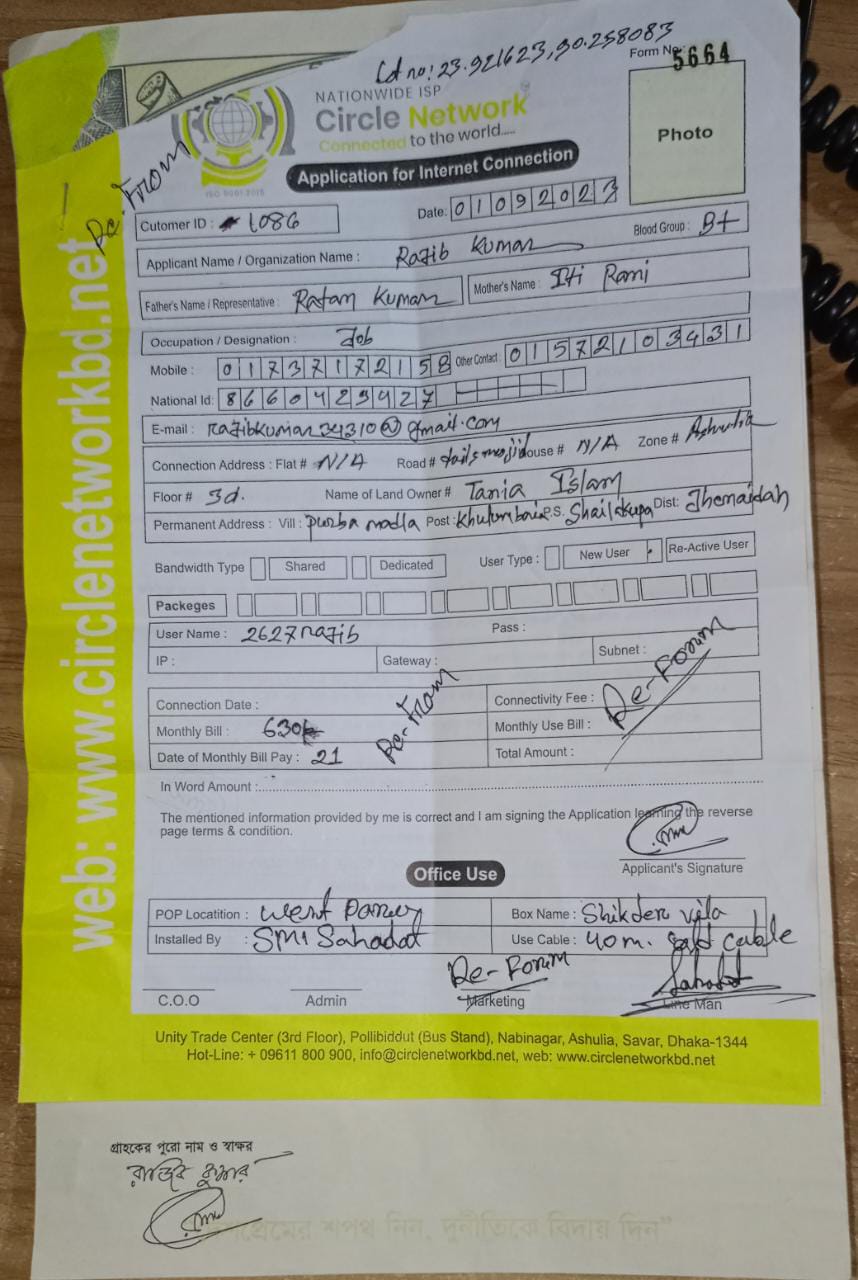 Ld no: 23.921623,90.258083
Form No: 5664
NATIONWIDE ISP
Circle Network
Connected to the world.....
ISO 9001:2015
Photo
Application for Internet Connection
Re-From
Cutomer ID : 1086
Date: 01092023
Applicant Name / Organization Name : Razib Kumar
Blood Group : B+
Father's Name / Representative : Ratan Kumar
Mother's Name : Iti Rani
Occupation / Designation : Job
Mobile : 01737172158 Other Contact : 01572103431
National Id: 8660429427
E-mail : razibkumar34310@gmail.com
Connection Address : Flat # N/A Road # House # N/A Zone # Ashulia
Floor # 3d. Name of Land Owner # Tania Islam
Permanent Address : Vill : purba madla Post : P.S. Shailkupa Dist: Jhenaidah
Bandwidth Type Shared Dedicated User Type : New User Re-Active User
Packeges
User Name : 2627razib Pass :
IP : Gateway : Subnet :
Re-From
Re-Forum
Connection Date : Connectivity Fee :
Monthly Bill : 630/- Monthly Use Bill :
Date of Monthly Bill Pay : 21 Total Amount :
In Word Amount :
The mentioned information provided by me is correct and I am signing the Application learning the reverse
page terms & condition.
Applicant's Signature
Office Use
POP Locatition : West Box Name : Shikder vila
Installed By : SM1 Sahadat Use Cable : 40m. cable
Re-Forum Sahadat
C.O.O Admin Marketing Line Man
Unity Trade Center (3rd Floor), Pollibiddut (Bus Stand), Nabinagar, Ashulia, Savar, Dhaka-1344
Hot-Line: + 09611 800 900, info@circlenetworkbd.net, web: www.circlenetworkbd.net
web: www.circlenetworkbd.net
গ্রাহকের পুরো নাম ও স্বাক্ষর
রাজিব কুমার
শপথ নিন, দুর্নীতিকে বিদায় দিন"